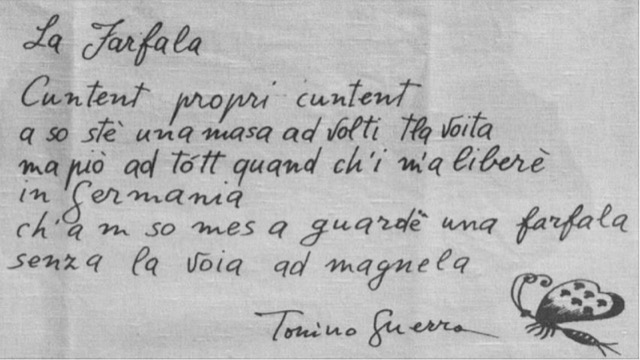 La Farfala
Cuntent propri cuntent
a so stè una masa ad volti tla voita
ma piò ad tótt quand ch'i m'a liberè
in Germania
ch'a m so mes a guardè una farfala
senza la voia ad magnela
Tonino Guerra